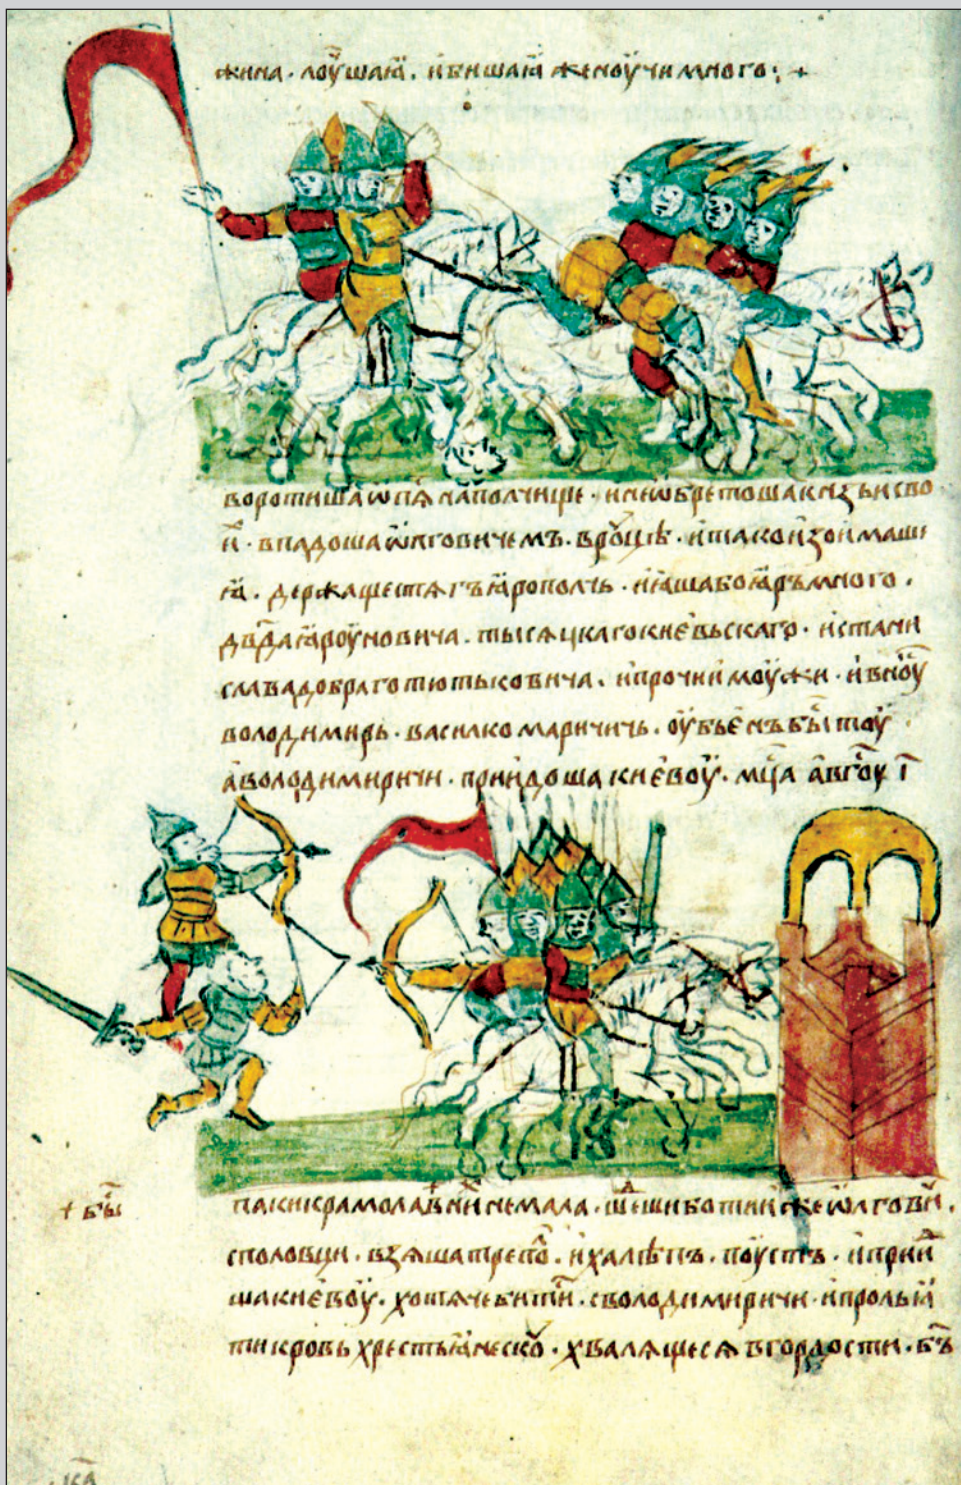 жина · лоучшаꙗ҄ · и҆ биша ꙗ҄ женоучи много ; +
воротишасѧ ѡ҆пѧ на полчище · и не ѡ҆брѣтоша кнѧзьи сво
и҄ · впадоша ѡ҆лговичемъ · в роуцѣ · и҆ тако и҆зои маша
ꙗ҄ · держаще стѧгъ ꙗ҆рополчь · и҆ ꙗ҆ша боꙗ҆ръ много ·
дв҃да ꙗ҆роуновича · тысѧцкаго киє҆вьскаго · и҆ стани
слава доброго тютьковича · и҆ прочии҆ моужи · и҆ вноу҄
володимирь · василко маричичь · оу҆бьє҆нъ бы҄ тоу ·
а҆ володимиричи · прии҆доша киє҆воу҄ · мц҃а а҆вгоу г҃
+ бы҄
паки крамола в ни немала · шеши бо тии҆ же ѡ҆лгови҄ ·
с половци · взѧша трепо · и҆ халѣпъ · поустъ · и҆ прии҆
ша киє҆воу҄ · хотѧче битии · с володимиричи · и҆ прольꙗ҄
ти кровь хрестьꙗ҆неско · хвалѧщесѧ в гордости · бъ